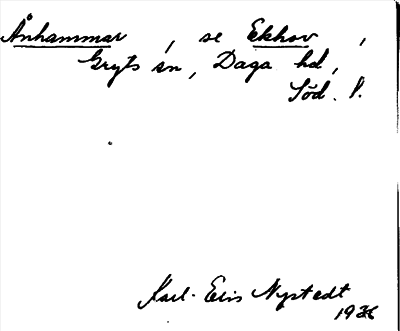 Ånhammar, se Ekhov,
Gryts sn, Daga hd,
Söd. l.
Karl-Elis Nystedt
1936